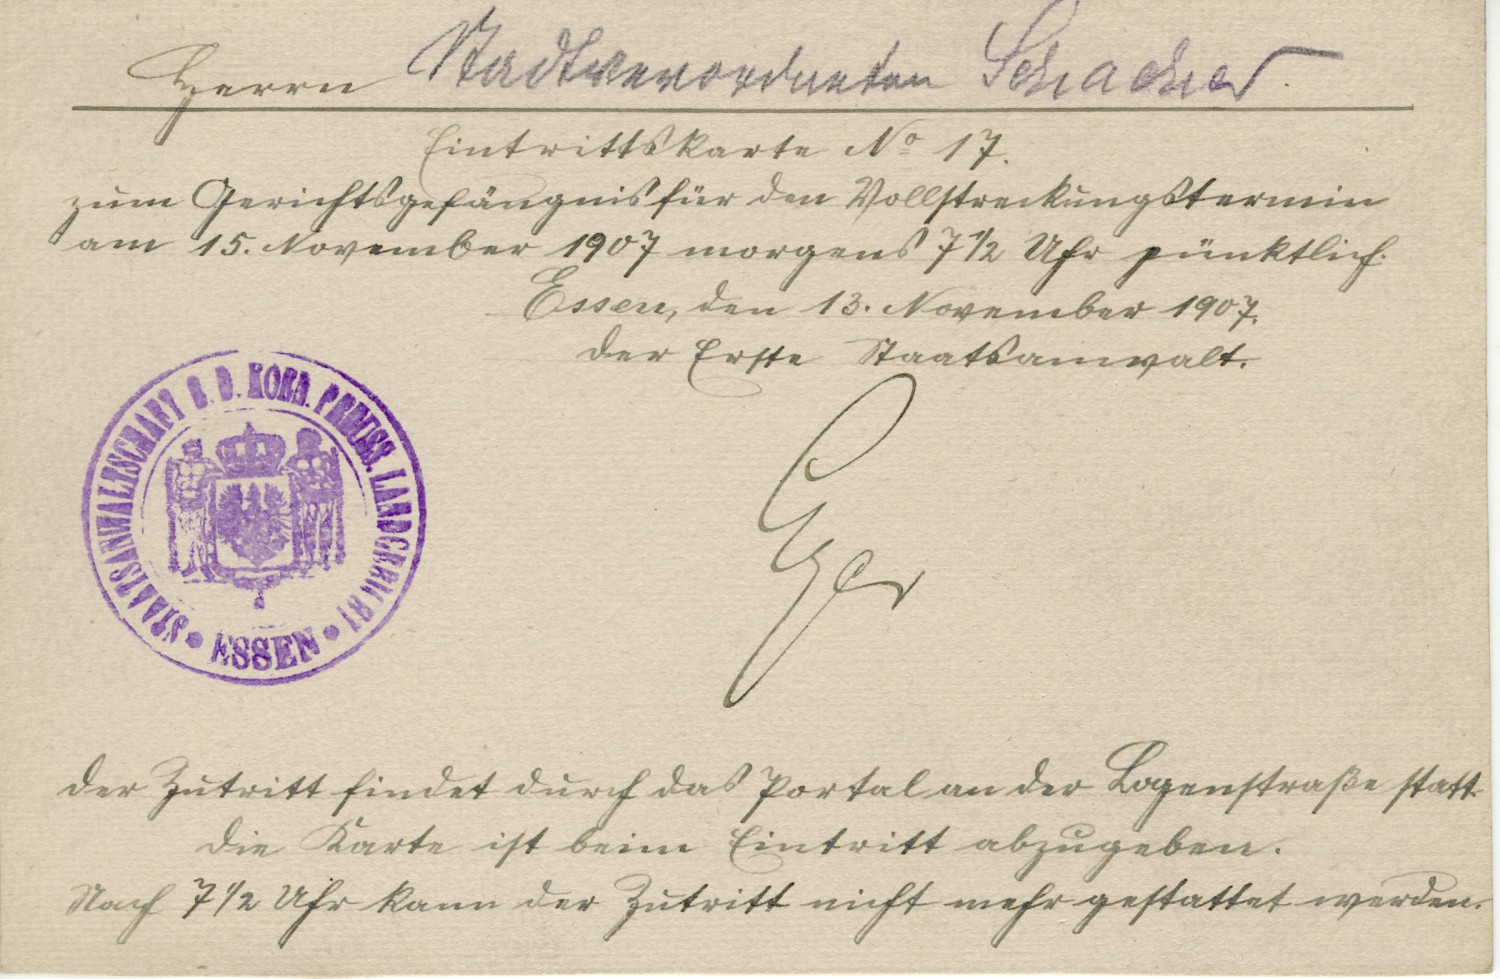 Herrn Stadtverordneten Schacher
Eintrittskarte No 17.
zum Gerichtsgefängnis für den Vollstreckungstermin
am 15. November 1907 morgens 7 1/2 Uhr pünktlich.
Essen, den 13. November 1907.
Der Erste Staatsanwalt.
STAATSANWALTSCHAFT B. D. KÖNIGL. PREUSS. LANDGERICHT
ESSEN
Der Zutritt findet durch das Portal an der Logenstraße statt.
Die Karte ist beim Eintritt abzugeben.
Nach 7 1/2 Uhr kann der Zutritt nicht mehr gestattet werden.